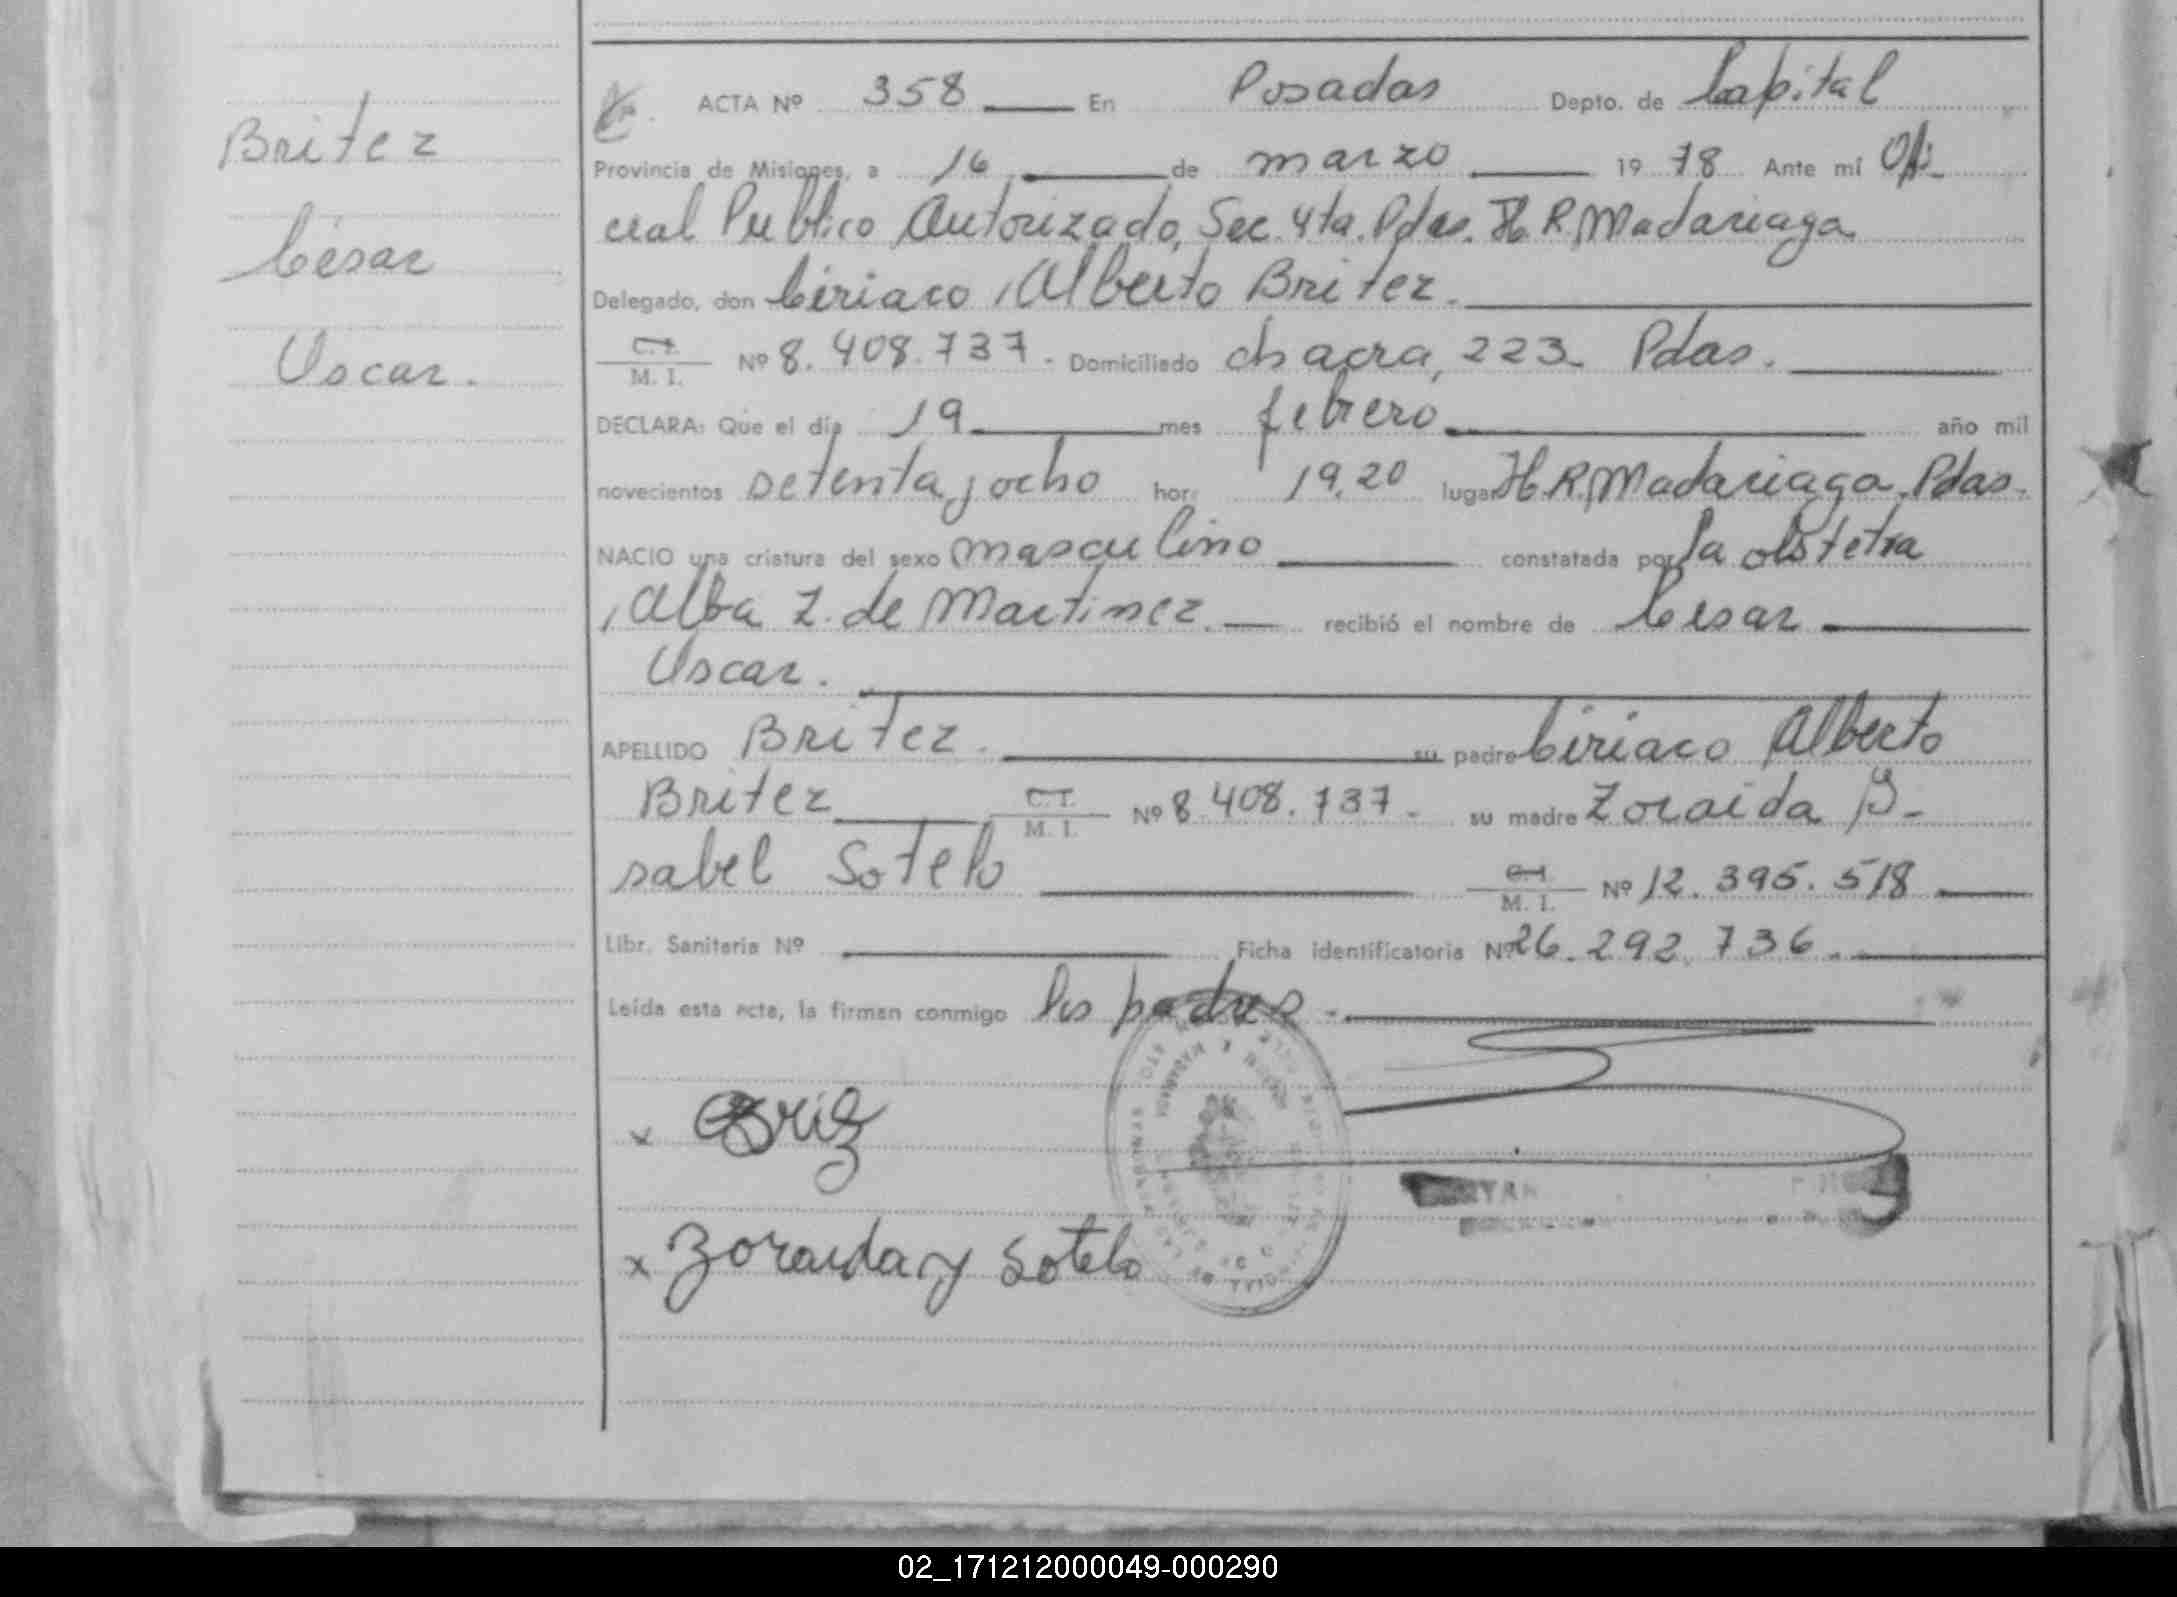 Britez
César
Oscar.
ACTA Nº 358 En Posadas Depto. de Capital
Provincia de Misiones, a 16 de marzo 1978 Ante mí Ofi-
cial Publico Autorizado, Sec. 4ta. Pdas. H. R. Madariaga
Delegado, don Ciriaco Alberto Britez.
C. I. M. I. Nº 8.408.737. Domiciliado chacra, 223 Pdas.
DECLARA: Que el día 19 mes febrero año mil
novecientos setenta y ocho hora 19,20 lugar H. R. Madariaga. Pdas.
NACIO una criatura del sexo masculino constatada por la obstetra
Alba Z. de Martinez. recibió el nombre de César
Oscar.
APELLIDO Britez. su padre Ciriaco Alberto
Britez C. I. M. I. Nº 8.408.737. su madre Zoraida Y-
sabel Sotelo C. I. M. I. Nº 12.395.518
Libr. Sanitaria Nº Ficha identificatoria Nº 26.292.736.
Leída esta acta, la firman conmigo los padres.
x
x Zoraida Y Sotelo
02_171212000049-000290